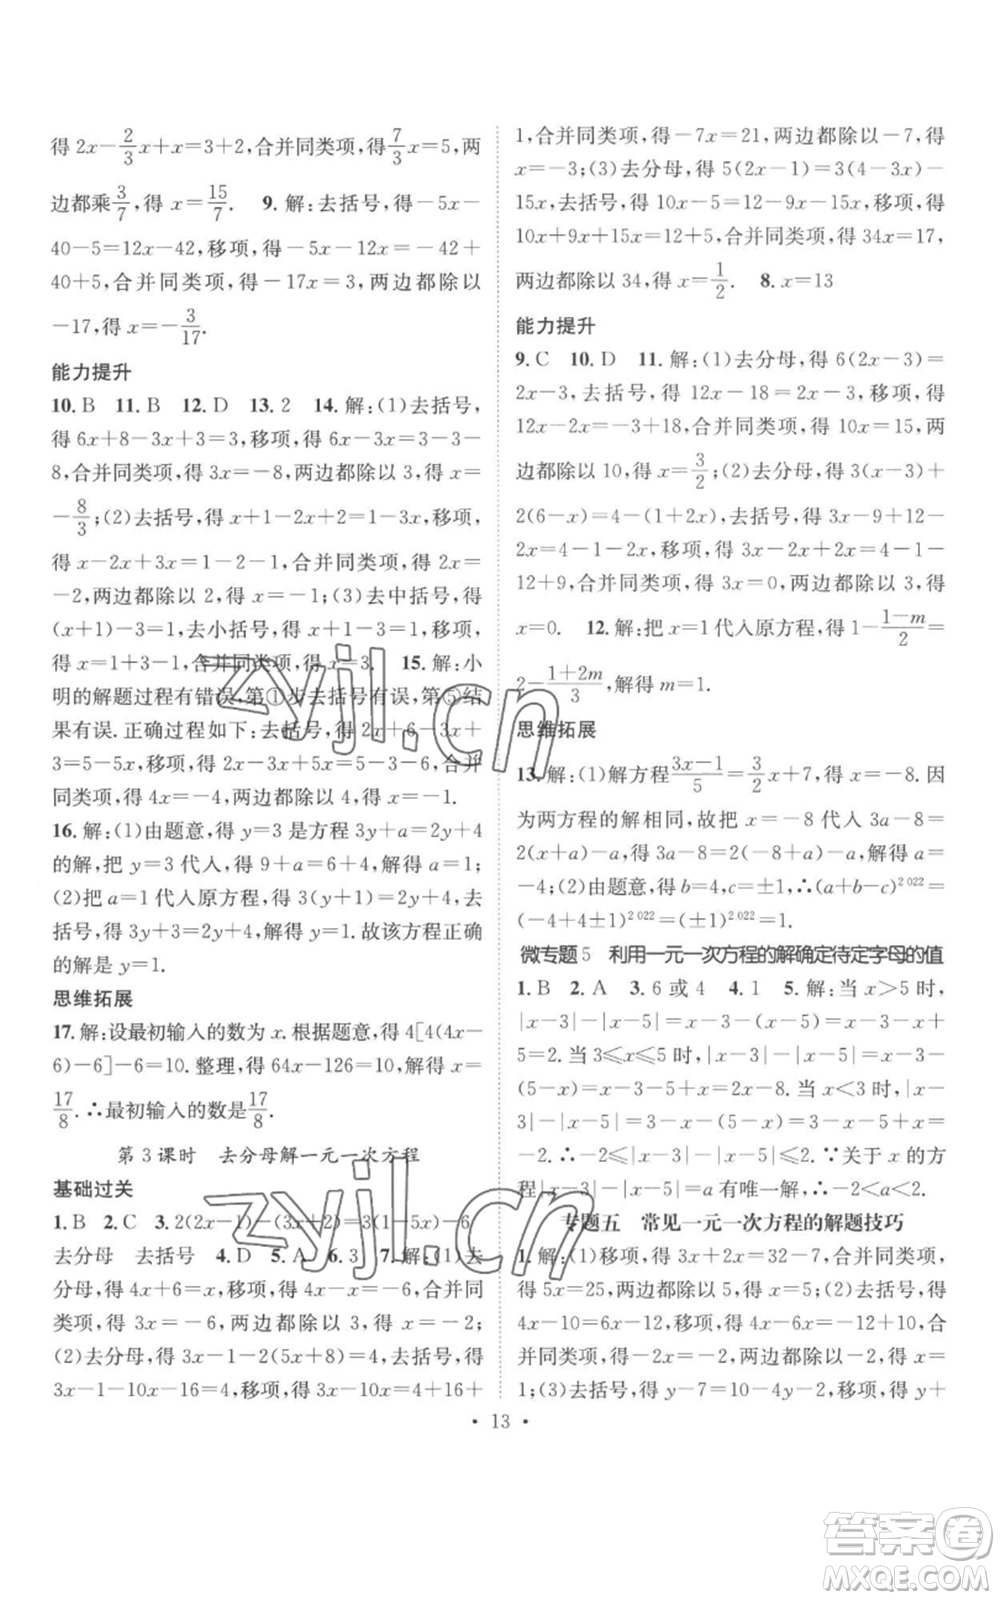 得 2x-2/3x+x=3+2,合并同类项,得7/3x=5,两
边都乘3/7,得 x=15/7. 9. 解:去括号,得-5x-
40-5=12x-42,移项,得-5x-12x=-42+
40+5,合并同类项,得-17x=3,两边都除以
-17,得 x=-3/17.
能力提升
10. B 11. B 12. D 13. 2 14. 解:(1)去括号,
得 6x+8-3x+3=3,移项,得 6x-3x=3-3-
8,合并同类项,得 3x=-8,两边都除以 3,得 x=
-8/3;(2)去括号,得 x+1-2x+2=1-3x,移项,
得 x-2x+3x=1-2-1,合并同类项,得 2x=
-2,两边都除以 2,得 x=-1;(3)去中括号,得
(x+1)-3=1,去小括号,得 x+1-3=1,移项,得
x=1+3-1,合并同类项,得 x=3. 15. 解:小
明的解题过程有错误,第①步去括号有误,第⑤结
果有误.正确过程如下:去括号,得 2x+6-3x+
3=5-5x,移项,得 2x-3x+5x=5-3-6,合并
同类项,得 4x=-4,两边都除以 4,得 x=-1.
16. 解:(1)由题意,得 y=3 是方程 3y+a=2y+4
的解,把 y=3 代入,得 9+a=6+4,解得 a=1;
(2)把 a=1 代入原方程,得 3(y+1)=2y+4,去
括号,得 3y+3=2y+4,解得 y=1.故该方程正确
的解是 y=1.
思维拓展
17. 解:设最初输入的数为 x.根据题意,得 4[4(4x-
6)-6]-6=10.整理,得 64x-126=10.解得 x=
17/8.∴最初输入的数是17/8.
第 3 课时 去分母解一元一次方程
基础过关
1. B 2. C 3. 2(2x-1)-(3x+2)=3(1-5x)-6
去分母 去括号 4. D 5. A 6. 3 7. 解:(1)去
分母,得 4x+6=x,移项,得 4x-x=-6,合并同
类项,得 3x=-6,两边都除以 3,得 x=-2;
(2)去分母,得 3x-1-2(5x+8)=4,去括号,得
3x-1-10x-16=4,移项,得 3x-10x=4+16+
1,合并同类项,得-7x=21,两边都除以-7,得
x=-3;(3)去分母,得 5(2x-1)=3(4-3x)-
15x,去括号,得 10x-5=12-9x-15x,移项,得
10x+9x+15x=12+5,合并同类项,得 34x=17,
两边都除以 34,得 x=1/2. 8. x=13
能力提升
9. C 10. D 11. 解:(1)去分母,得 6(2x-3)=
2x-3,去括号,得 12x-18=2x-3,移项,得
12x-2x=-3+18,合并同类项,得 10x=15,两
边都除以 10,得 x=3/2;(2)去分母,得 3(x-3)+
2(6-x)=4-(1+2x),去括号,得 3x-9+12-
2x=4-1-2x,移项,得 3x-2x+2x=4-1+9-
12,合并同类项,得 3x=0,两边都除以 3,得
x=0. 12. 解:把 x=1 代入原方程,得 1-(1-m)/2=
2-(1+2m)/3,解得 m=1.
思维拓展
13. 解:(1)解方程(3x-1)/5=3/2x+7,得 x=-8.因
为两方程的解相同,故把 x=-8 代入 3a-8=
2(x+a)-a,得 3a-8=2(-8+a)-a,解得 a=
-4;(2)由题意,得 b=4,c=±1,∴(a+b-c)²⁰²²=
(-4+4±1)²⁰²²=(±1)²⁰²²=1.
微专题 5 利用一元一次方程的解确定待定字母的值
1. B 2. A 3. 6 或 4 4. 1 5. 解:当 x>5 时,
|x-3|-|x-5|=x-3-(x-5)=x-3-x+
5=2.当 3≤x≤5 时,|x-3|-|x-5|=x-3-
(5-x)=x-3-5+x=2x-8.当 x<3 时,|x-
3|-|x-5|=3-x-(5-x)=3-x-5+x=
-2.∴-2≤|x-3|-|x-5|≤2.∵关于 x 的方
程|x-3|-|x-5|=a 有唯一解,∴-2<a<2.
专题五 常见一元一次方程的解题技巧
1. 解:(1)移项,得 3x+2x=32-7,合并同类项,
得 5x=25,两边都除以 5,得 x=5;(2)去括号,得
4x-10=6x-12,移项,得 4x-6x=-12+10,合
并同类项,得-2x=-2,两边都除以-2,得 x=
1;(3)去括号,得 y-7=10-4y-2,移项,得 y+
• 13 •
zyjl.cn
zyjl.cn
答案卷
MXQE.COM